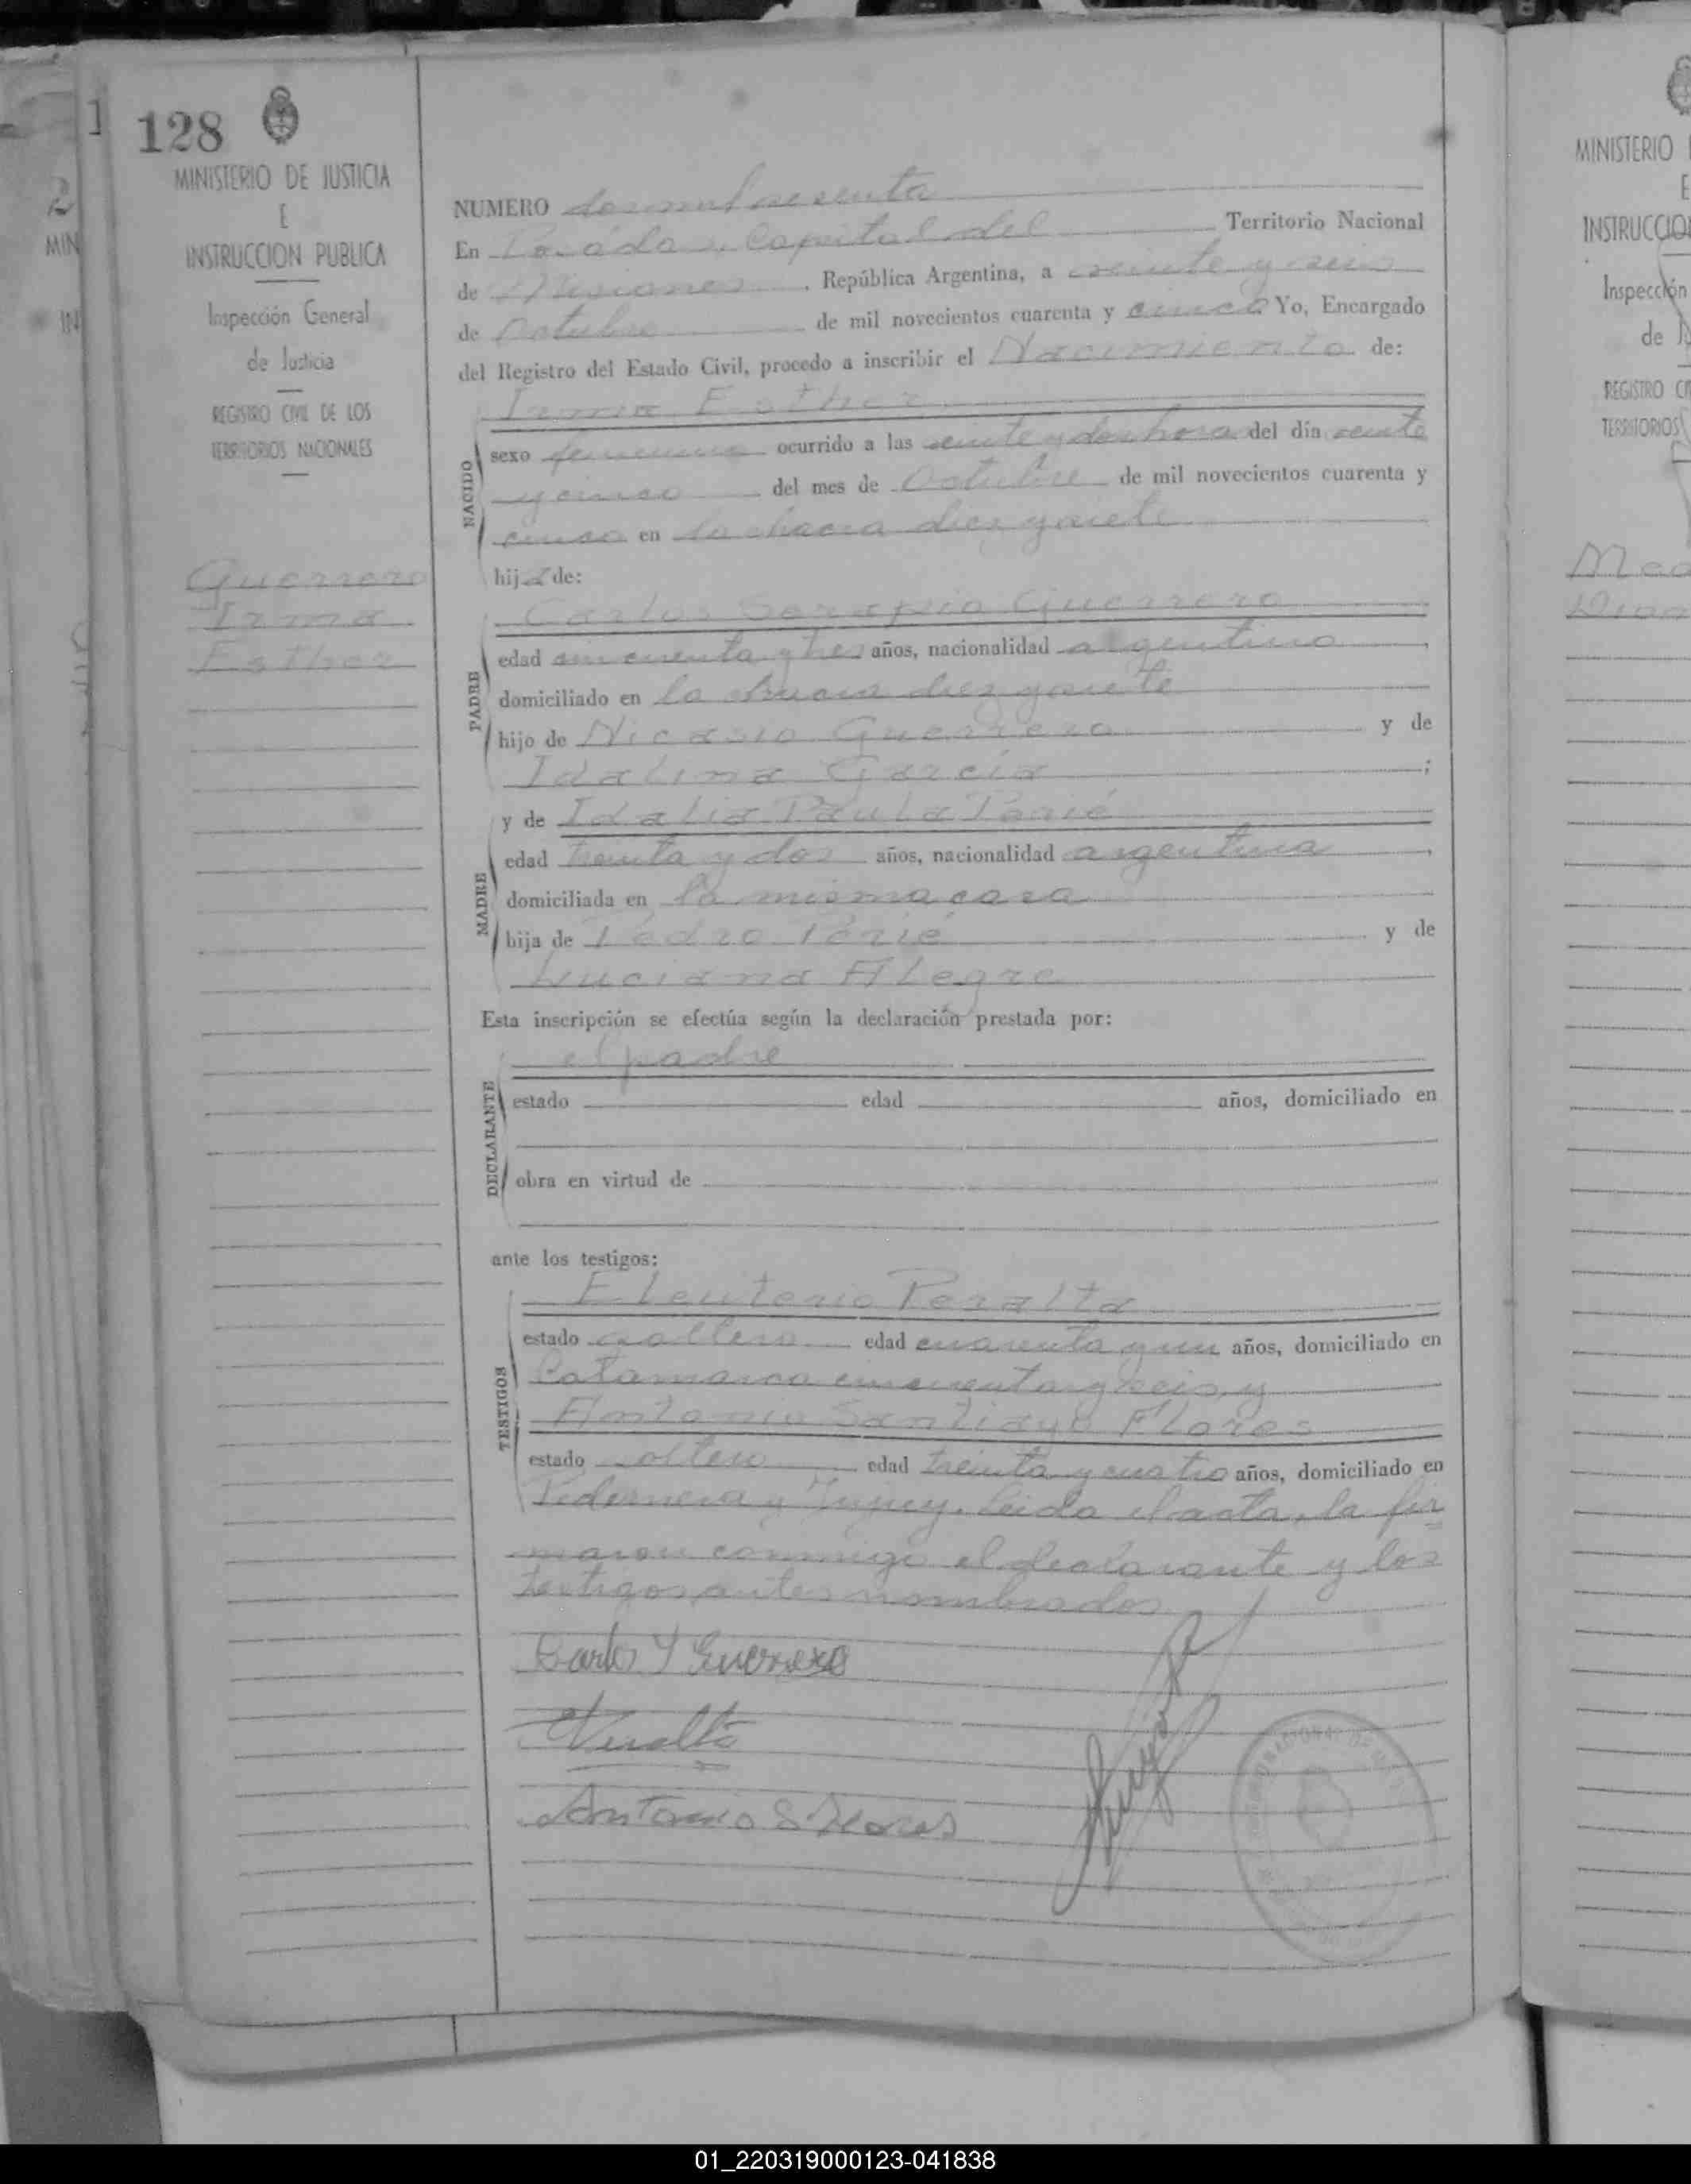 128
MINISTERIO DE JUSTICIA
E
INSTRUCCION PUBLICA
Inspección General
de Justicia
REGISTRO CIVIL DE LOS
TERRITORIOS NACIONALES
Guerrero
Irma
Esther
NUMERO dos mil sesenta
En Posadas, Capital del Territorio Nacional
de Misiones, República Argentina, a veinte y seis
de Octubre de mil novecientos cuarenta y cinco Yo, Encargado
del Registro del Estado Civil, procedo a inscribir el Nacimiento de:
Irma Esther
NACIDO
sexo femenino ocurrido a las veinte y dos horas del día veinte
y cinco del mes de Octubre de mil novecientos cuarenta y
cinco en la chacra diez y siete
hija de:
Carlos Serapio Guerrero
PADRE
edad cincuenta y tres años, nacionalidad argentino,
domiciliado en la chacra diez y siete
hijo de Nicasio Guerrero y de
Idalina García;
y de Idalia Paula Perié
MADRE
edad treinta y dos años, nacionalidad argentina,
domiciliada en la misma casa
hija de Pedro Périé y de
Luciana Alegre
Esta inscripción se efectúa según la declaración prestada por:
el padre
DECLARANTE
estado edad años, domiciliado en
obra en virtud de
ante los testigos:
Eleuterio Peralta
TESTIGOS
estado soltero edad cuarenta y un años, domiciliado en
Catamarca cincuenta y seis, y
Antonio Santiago Flores
estado soltero edad treinta y cuatro años, domiciliado en
Pedernera y Jujuy. Leida el acta, la fir
maron conmigo el declarante y los
testigos antes nombrados
Carlos S Guerrero
Peralta
Antonio S Flores
MINISTERIO
E
INSTRUCCIO
Inspección
de Ju
REGISTRO CI
TERRITORIOS
MIN
IN
01_220319000123-041838